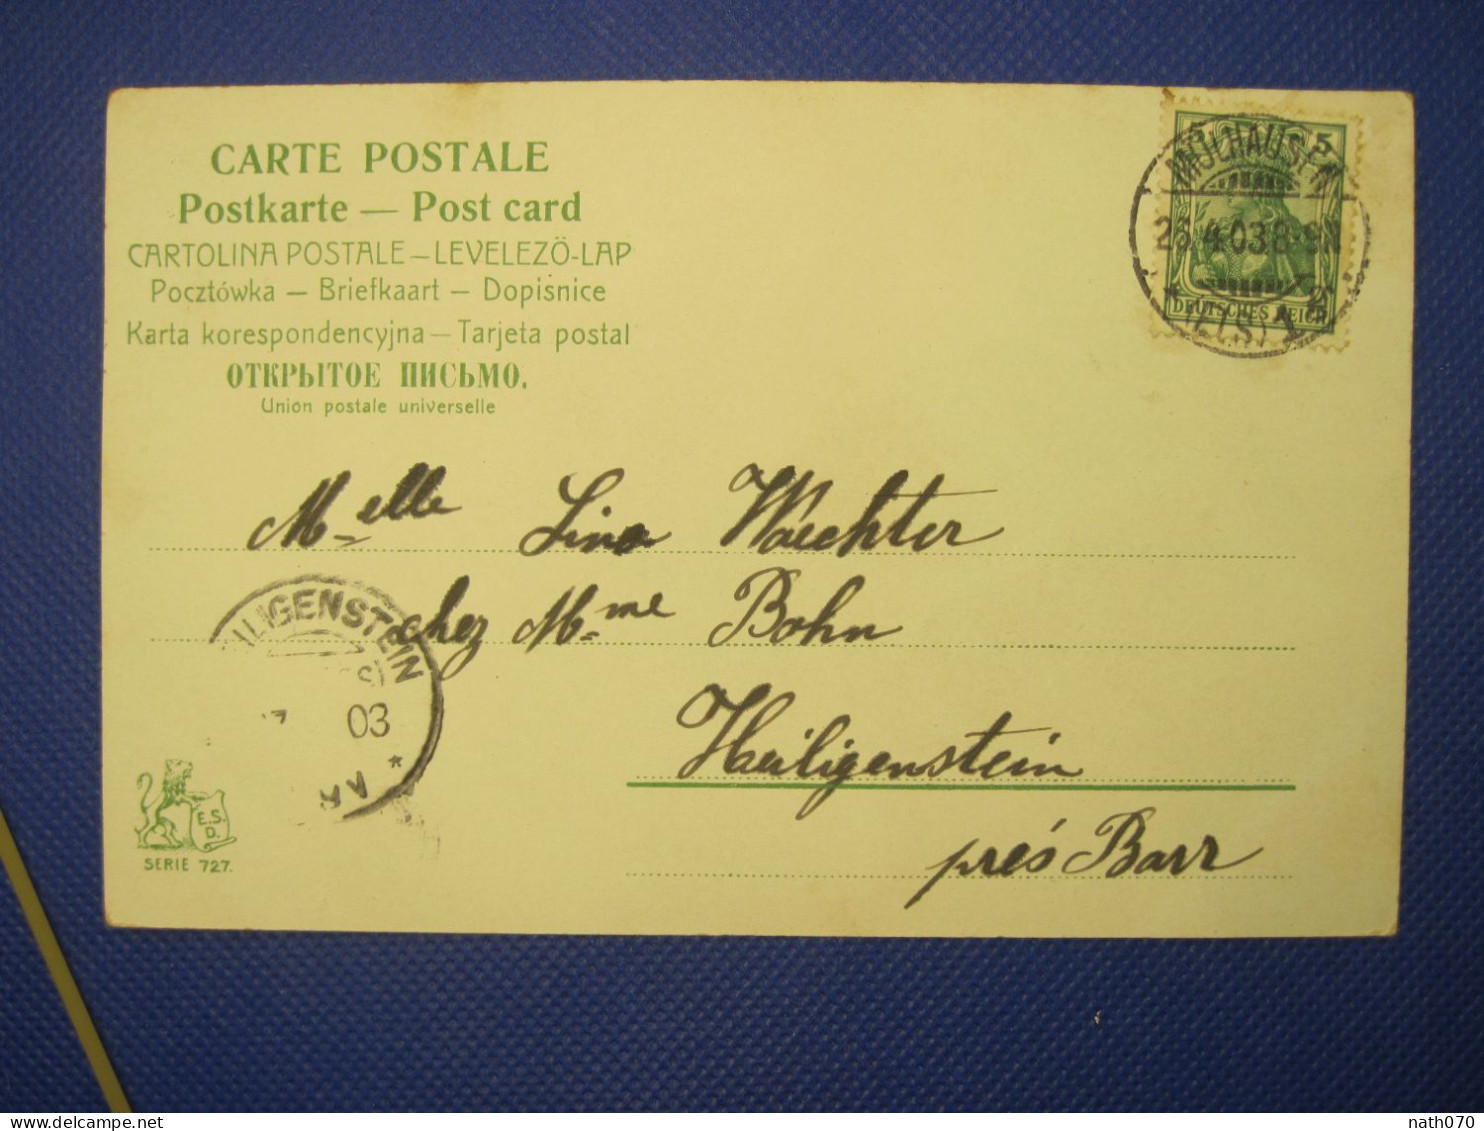 CARTE POSTALE
Postkarte — Post card
CARTOLINA POSTALE – LEVELEZÖ-LAP
Pocztówka — Briefkaart — Dopisnice
Karta korespondencyjna — Tarjeta postal
ОТКРЫТОЕ ПИСЬМО.
Union postale universelle
5
MÜLHAUSEN
4.03.8-9N
DEUTSCHES REICH
(ELS) 1
Melle Lina Waechter
chez Mme Bohn
Heiligenstein
près Barr
ILIGENSTEIN
03
E.S.
D.
SERIE 727.
nath070